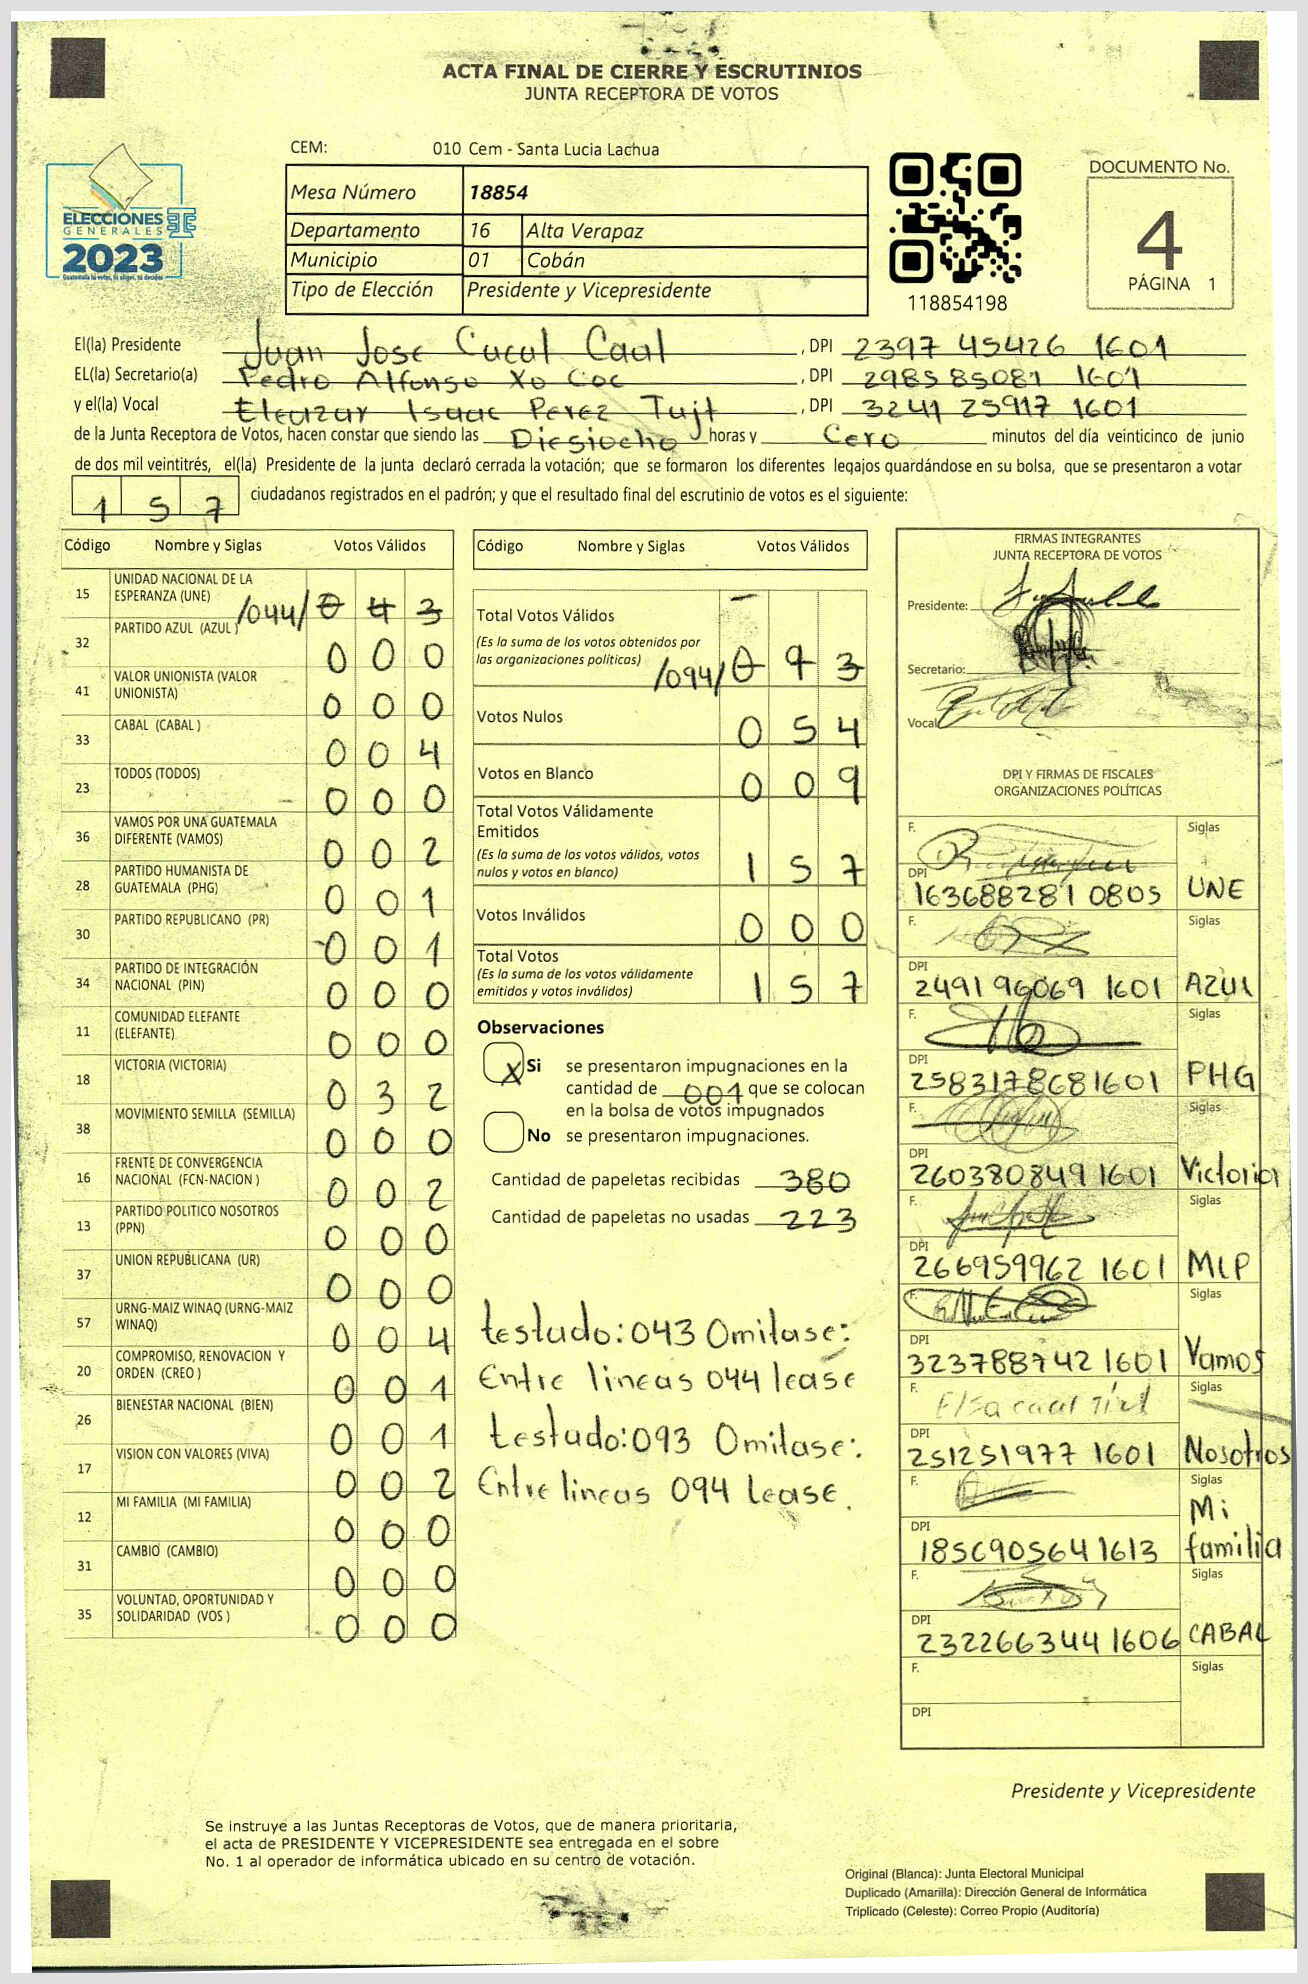 ACTA FINAL DE CIERRE Y ESCRUTINIOS
JUNTA RECEPTORA DE VOTOS
CEM: 010 Cem - Santa Lucia Lachua
ELECCIONES
GENERALES
2023
Mesa Número 18854
Departamento 16 Alta Verapaz
Municipio 01 Cobán
Tipo de Elección Presidente y Vicepresidente
118854198
DOCUMENTO No.
4
PÁGINA 1
El(la) Presidente Juan Jose Cucul Caal, DPI 2397 45426 1601
EL(la) Secretario(a) Pedro Alfonso Xo Coc, DPI 2985 85081 1601
y el(la) Vocal Eleazar Isaac Perez Tujt, DPI 3241 25917 1601
de la Junta Receptora de Votos, hacen constar que siendo las Diesiocho horas y Cero minutos del día veinticinco de junio
de dos mil veintitrés, el(la) Presidente de la junta declaró cerrada la votación; que se formaron los diferentes legajos guardándose en su bolsa, que se presentaron a votar
1 5 7 ciudadanos registrados en el padrón; y que el resultado final del escrutinio de votos es el siguiente:
Código Nombre y Siglas Votos Válidos
15 UNIDAD NACIONAL DE LA
ESPERANZA (UNE) /044/ 0 4 3
32 PARTIDO AZUL (AZUL) 0 0 0
41 VALOR UNIONISTA (VALOR
UNIONISTA) 0 0 0
33 CABAL (CABAL ) 0 0 4
23 TODOS (TODOS) 0 0 0
36 VAMOS POR UNA GUATEMALA
DIFERENTE (VAMOS) 0 0 2
28 PARTIDO HUMANISTA DE
GUATEMALA (PHG) 0 0 1
30 PARTIDO REPUBLICANO (PR) 0 0 1
34 PARTIDO DE INTEGRACIÓN
NACIONAL (PIN) 0 0 0
11 COMUNIDAD ELEFANTE
(ELEFANTE) 0 0 0
18 VICTORIA (VICTORIA) 0 3 2
38 MOVIMIENTO SEMILLA (SEMILLA) 0 0 0
16 FRENTE DE CONVERGENCIA
NACIONAL (FCN-NACION ) 0 0 2
13 PARTIDO POLITICO NOSOTROS
(PPN) 0 0 0
37 UNION REPUBLICANA (UR) 0 0 0
57 URNG-MAIZ WINAQ (URNG-MAIZ
WINAQ) 0 0 4
20 COMPROMISO, RENOVACION Y
ORDEN (CREO ) 0 0 1
26 BIENESTAR NACIONAL (BIEN) 0 0 1
17 VISION CON VALORES (VIVA) 0 0 2
12 MI FAMILIA (MI FAMILIA) 0 0 0
31 CAMBIO (CAMBIO) 0 0 0
35 VOLUNTAD, OPORTUNIDAD Y
SOLIDARIDAD (VOS ) 0 0 0
Código Nombre y Siglas Votos Válidos
Total Votos Válidos
(Es la suma de los votos obtenidos por
las organizaciones políticas) /094/ 0 9 3
Votos Nulos 0 5 4
Votos en Blanco 0 0 9
Total Votos Válidamente
Emitidos
(Es la suma de los votos válidos, votos
nulos y votos en blanco) 1 5 7
Votos Inválidos 0 0 0
Total Votos
(Es la suma de los votos válidamente
emitidos y votos inválidos) 1 5 7
Observaciones
X Si se presentaron impugnaciones en la
cantidad de 001 que se colocan
en la bolsa de votos impugnados
No se presentaron impugnaciones.
Cantidad de papeletas recibidas 380
Cantidad de papeletas no usadas 223
testado:043 Omitase:
Entre lineas 044 lease
testado:093 Omitase:
Entre lineas 094 lease.
FIRMAS INTEGRANTES
JUNTA RECEPTORA DE VOTOS
Presidente:
Secretario:
Vocal
DPI Y FIRMAS DE FISCALES
ORGANIZACIONES POLÍTICAS
F. Siglas
DPI
163688281 0805 UNE
F. Siglas
DPI
249196069 1601 AZUL
F. Siglas
DPI
258317868 1601 PHG
F. Siglas
DPI
260380849 1601 Victoria
F. Siglas
DPI
266959962 1601 MLP
F. Siglas
DPI
323788742 1601 Vamos
F. Elsa caal Siglas
DPI
251251977 1601 Nosotros
F. Siglas
DPI
185690564 1613 Mi familia
F. Siglas
DPI
232266344 1606 CABAL
F. Siglas
DPI
Presidente y Vicepresidente
Se instruye a las Juntas Receptoras de Votos, que de manera prioritaria,
el acta de PRESIDENTE Y VICEPRESIDENTE sea entregada en el sobre
No. 1 al operador de informática ubicado en su centro de votación.
Original (Blanca): Junta Electoral Municipal
Duplicado (Amarilla): Dirección General de Informática
Triplicado (Celeste): Correo Propio (Auditoría)